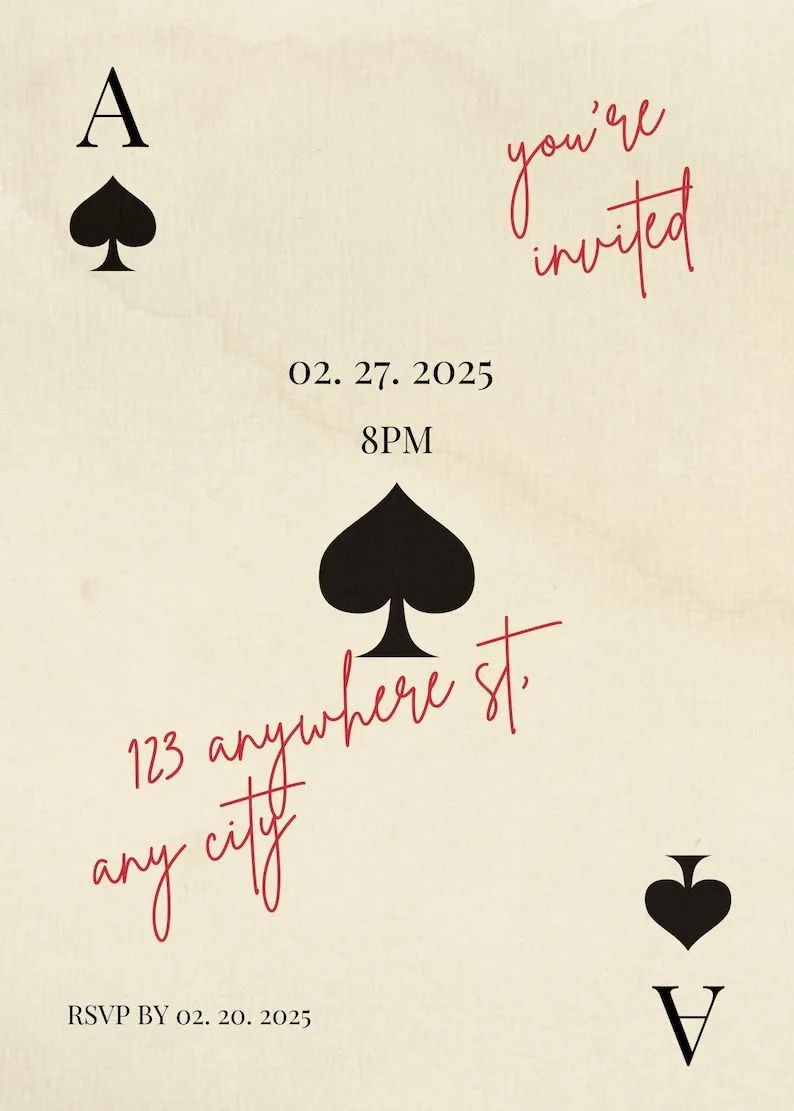 A
you're
invited
02. 27. 2025
8PM
123 anywhere st,
any city
RSVP BY 02. 20. 2025
A